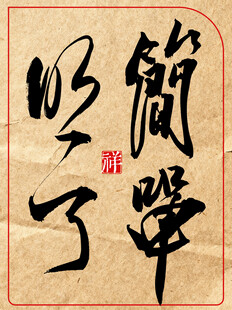 簡單
明了
祥